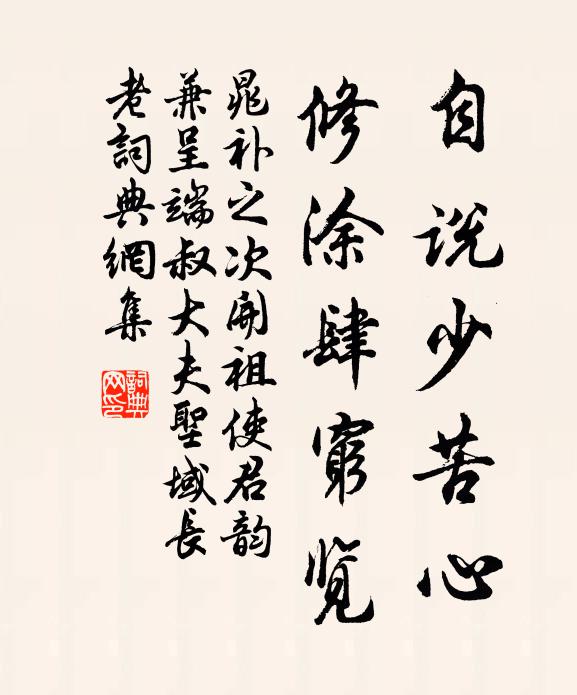 自说少苦心
修涂肆窮览
晁补之次開祖使君韵
兼呈端叔大夫聖域長
老詞典網集
詞典網印